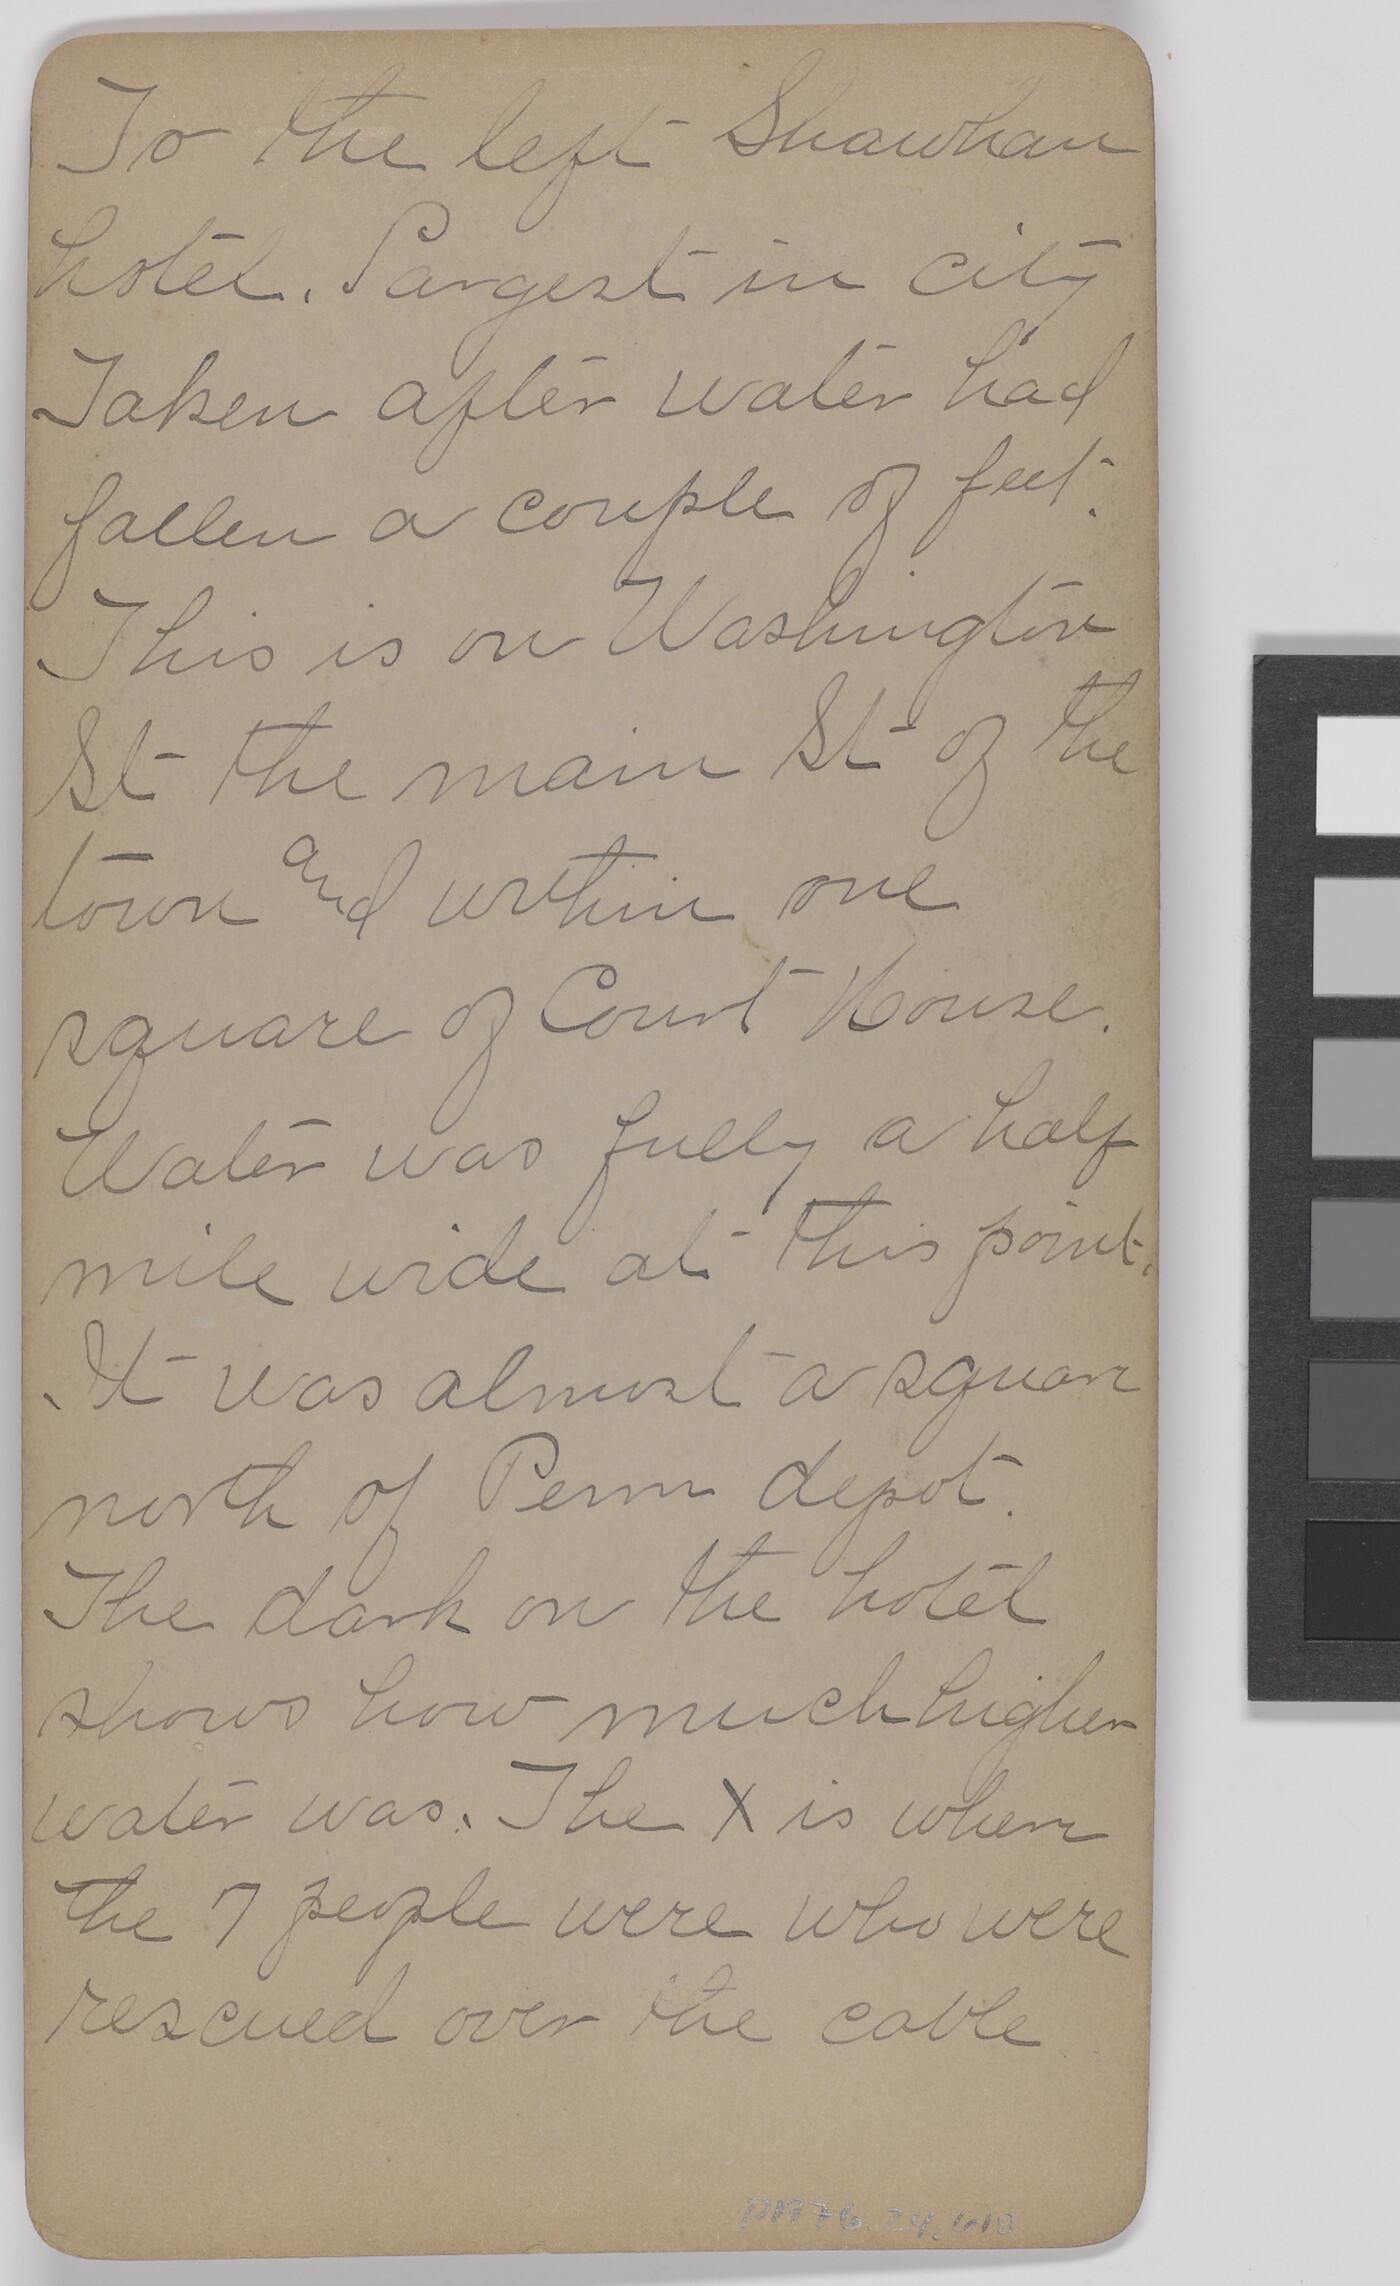 To the left Shawhan
hotel. Largest in city
Taken after water had
fallen a couple of feet.
This is on Washington
St the main St of the
town and within one
square of Court House.
Water was fully a half
mile wide at this point.
It was almost a square
north of Penn depot.
The dark on the hotel
shows how much higher
water was. The X is where
the 7 people were who were
rescued over the cable